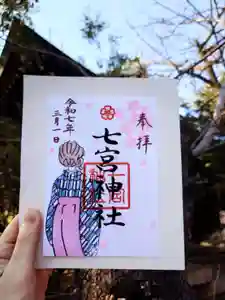 奉拝
七宮神社
令和七年
三月一日